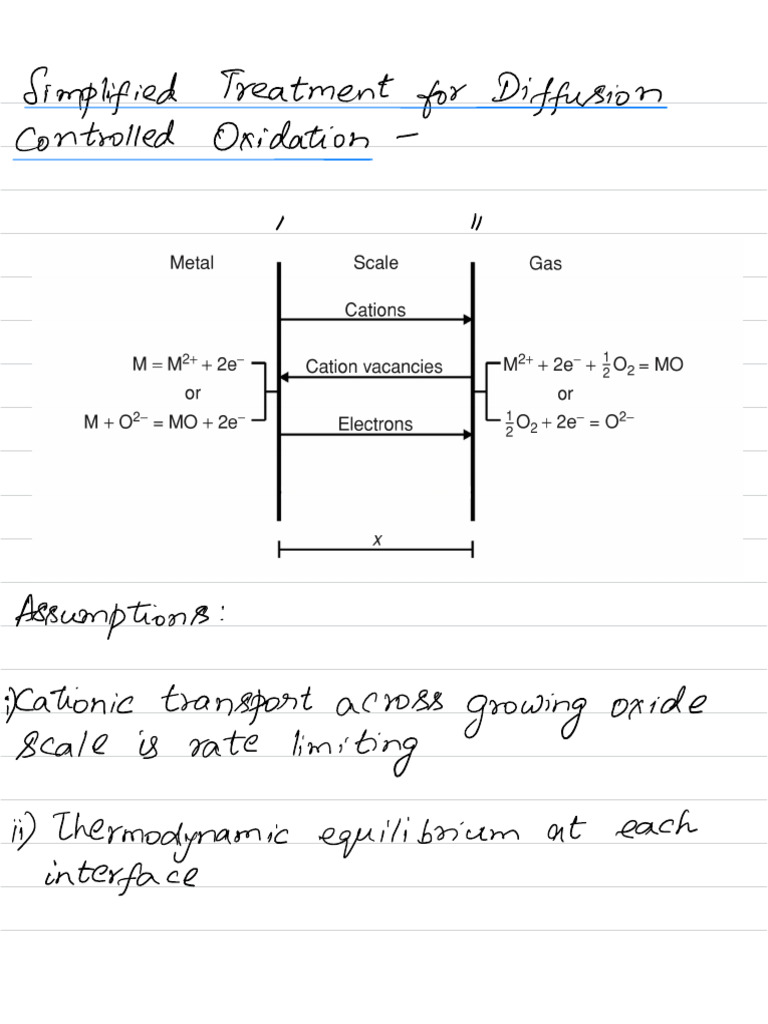 Simplified Treatment for Diffusion
Controlled Oxidation –
I II
Metal Scale Gas
Cations
M = M²⁺ + 2e⁻ Cation vacancies M²⁺ + 2e⁻ + ½O₂ = MO
or or
M + O²⁻ = MO + 2e⁻ Electrons ½O₂ + 2e⁻ = O²⁻
x
Assumptions:
i) Cationic transport across growing oxide
scale is rate limiting
ii) Thermodynamic equilibrium at each
interface